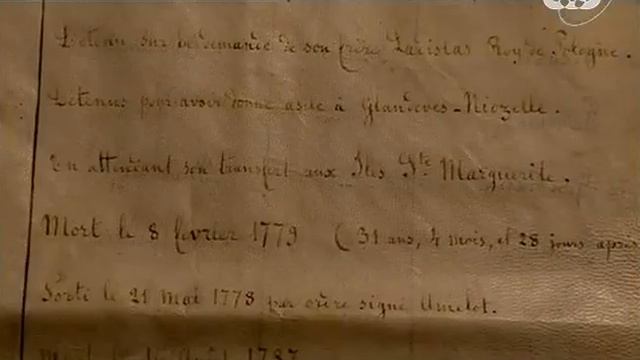 Détenu sur la demande de son frère Larislas Roy de Pologne.
Détenus pour avoir donné asile à Glandèves-Niozelle.
En attendant son transfert aux Iles Ste Marguerite.
Mort le 8 février 1779 (31 ans, 4 mois, et 28 jours après
Sorti le 21 Mai 1778 par ordre signé Amelot.
Mort le 1787